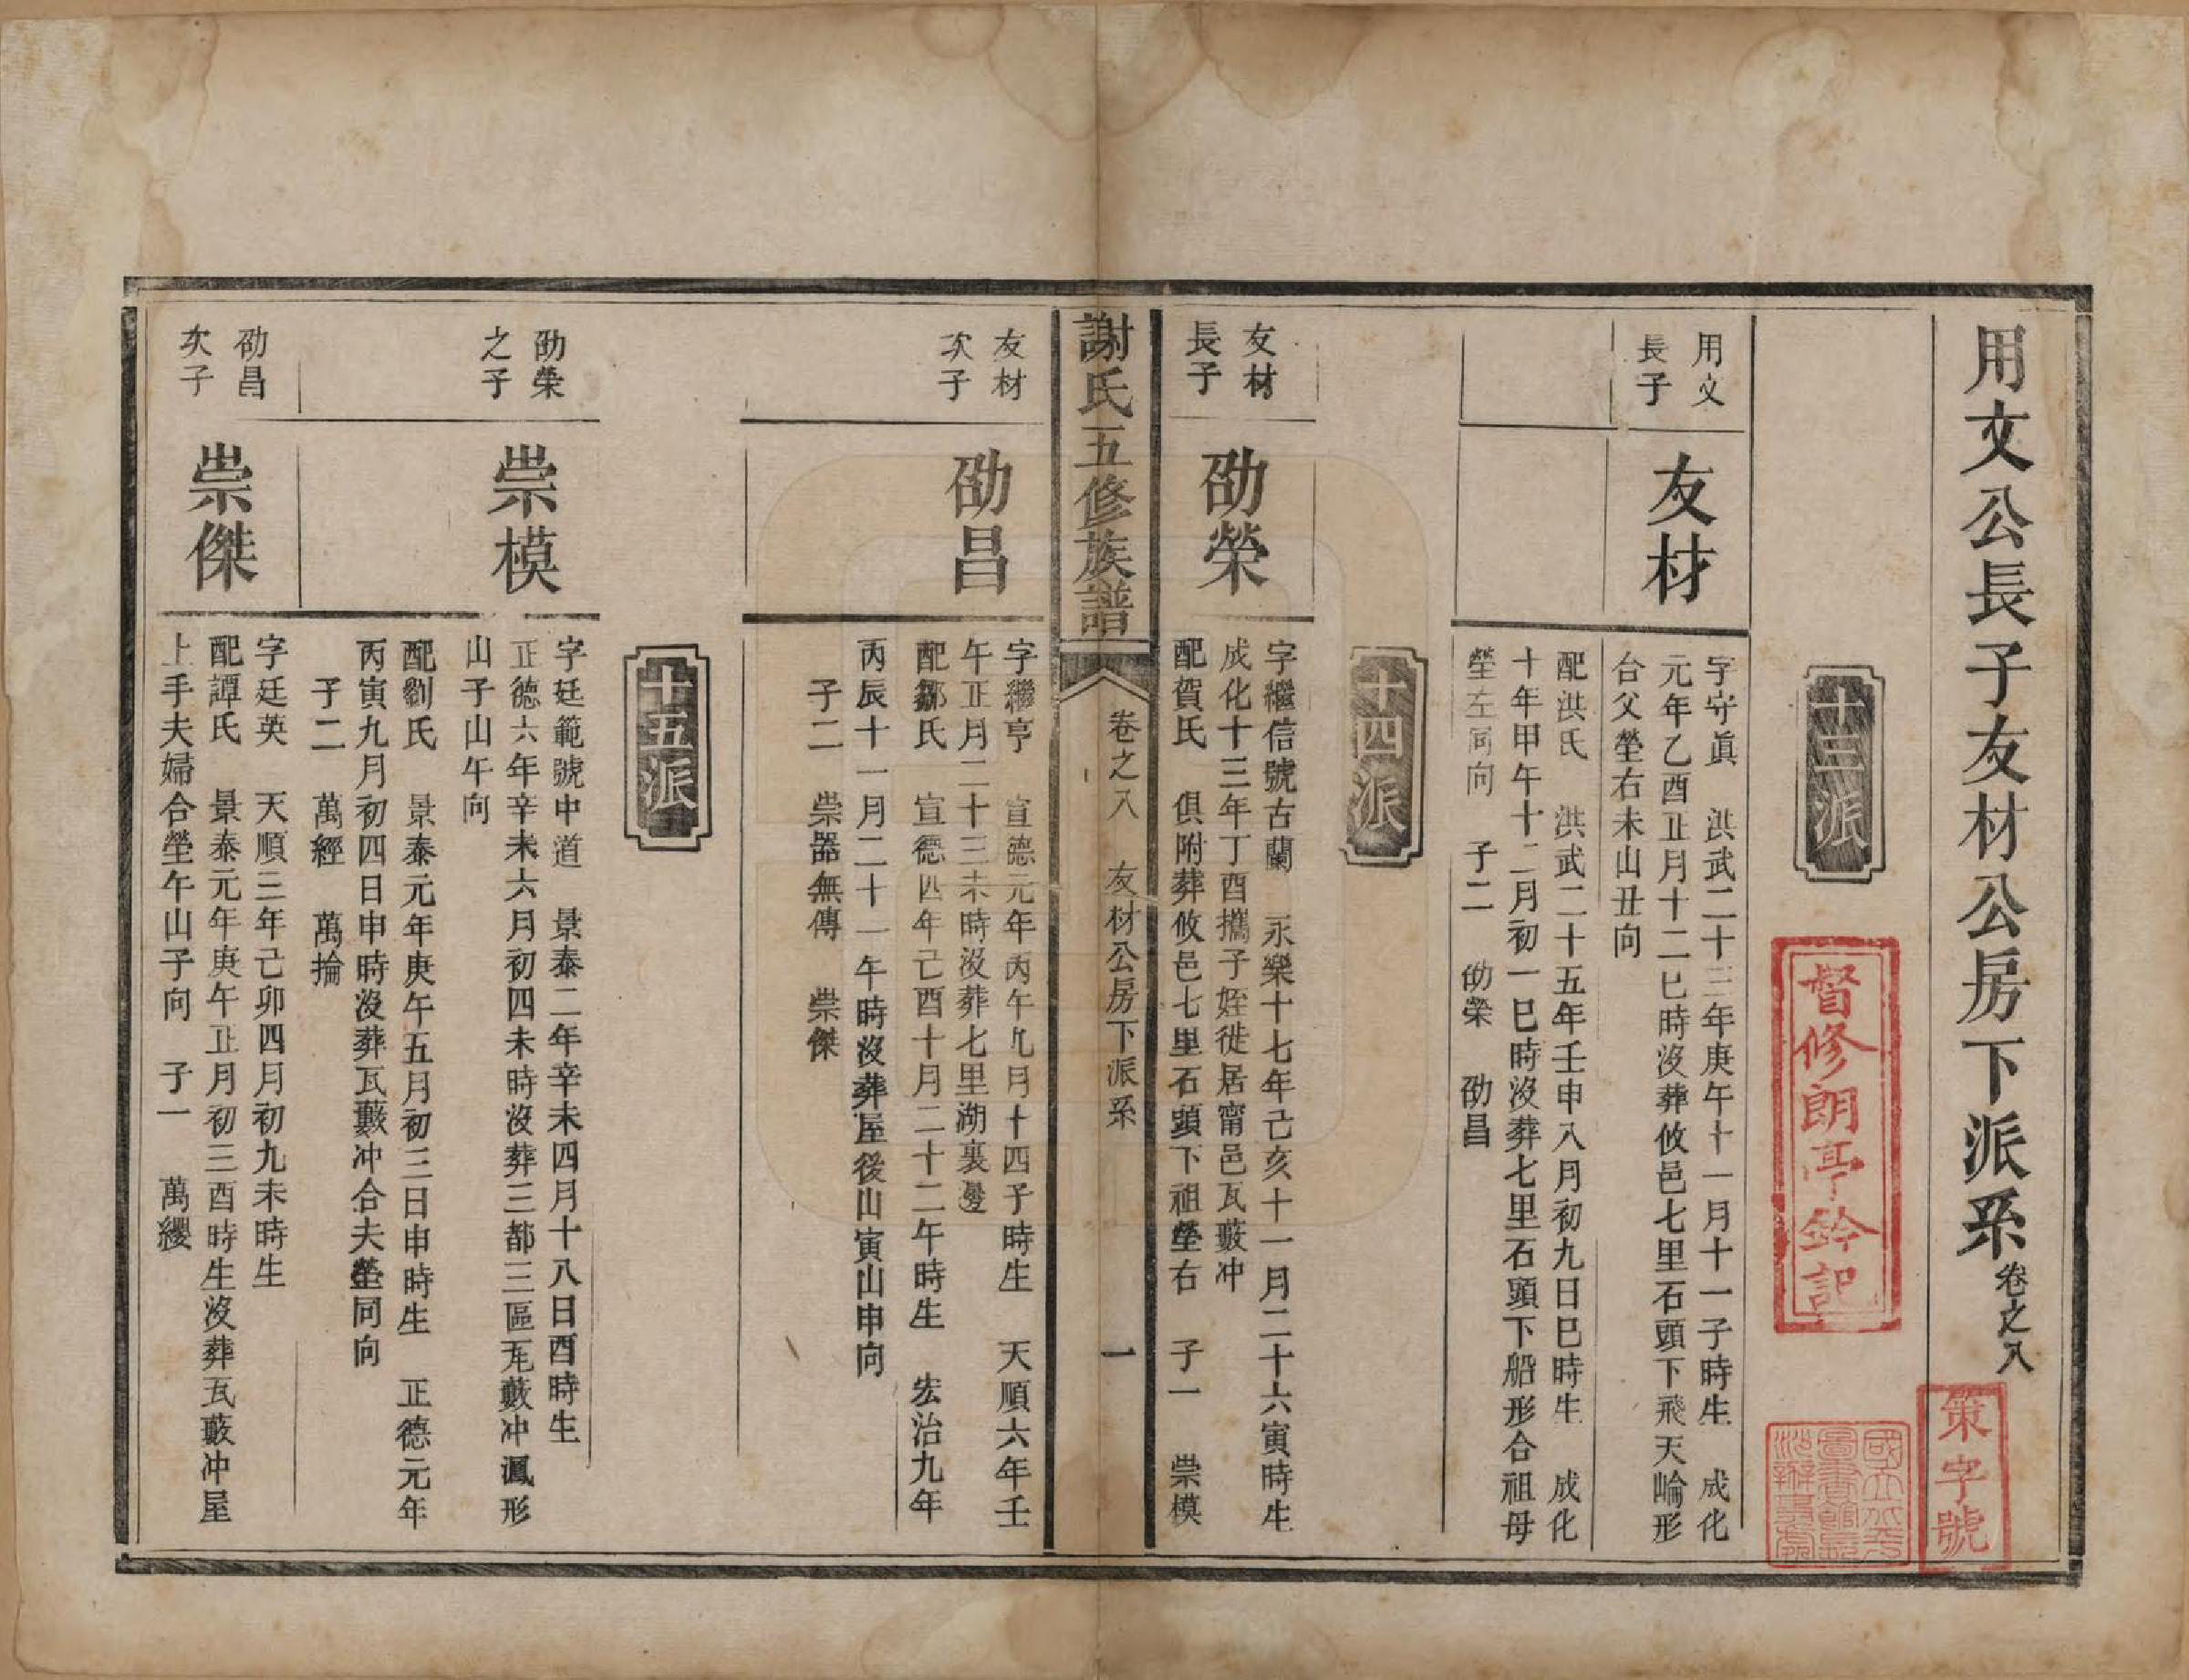 用文公長子友材公房下派系卷之八
策字號
十三派
督修朗亭鈐記
用文
長子
友材
字守眞　洪武二十三年庚午十一月十一子時生　成化
元年乙酉正月十二巳時沒葬攸邑七里石頭下飛天崘形
台父塋右未山丑向
配洪氏　洪武二十五年壬申八月初九日巳時生　成化
十年甲午十二月初一巳時沒葬七里石頭下船形合祖母
塋左同向　子二　劭榮　劭昌
十四派
友材
長子
劭榮
字繼信號古蘭　永樂十七年己亥十一月二十六寅時生
成化十三年丁酉攜子姪徙居甯邑瓦藪冲
配賀氏　俱附葬攸邑七里石頭下祖塋右　子一　崇模
謝氏五修族譜
卷之八　友材公房下派系
一
友材
次子
劭昌
字繼亨　宣德元年丙午九月十四子時生　天順六年壬
午正月二十三未時沒葬七里湖裏邊
配鄒氏　宣德四年己酉十月二十二午時生　宏治九年
丙辰十一月二十一午時沒葬屋後山寅山申向
子二　崇器無傳　崇傑
十五派
劭榮
之子
崇模
字廷範號中道　景泰二年辛未四月十八日酉時生
正德六年辛未六月初四未時沒葬三都三區瓦藪冲鳳形
山子山午向
配劉氏　景泰元年庚午五月初三日申時生　正德元年
丙寅九月初四日申時沒葬瓦藪冲合夫塋同向
子二　萬經　萬掄
劭昌
次子
崇傑
字廷英　天順三年己卯四月初九未時生
配譚氏　景泰元年庚午正月初三酉時生沒葬瓦藪冲屋
上手夫婦合塋午山子向　子一　萬纓